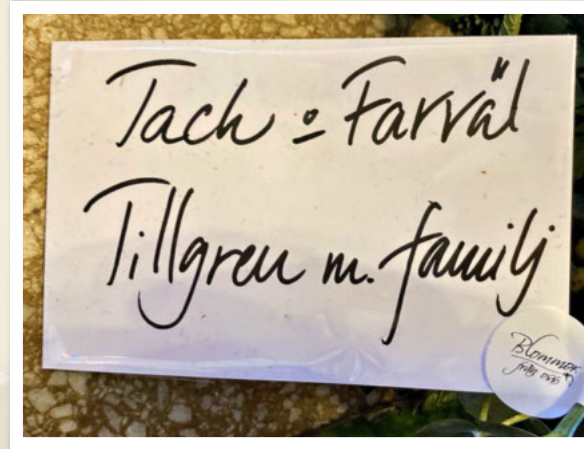 Tack o Farväl
Tillgren m. familj
Blommor
från oss